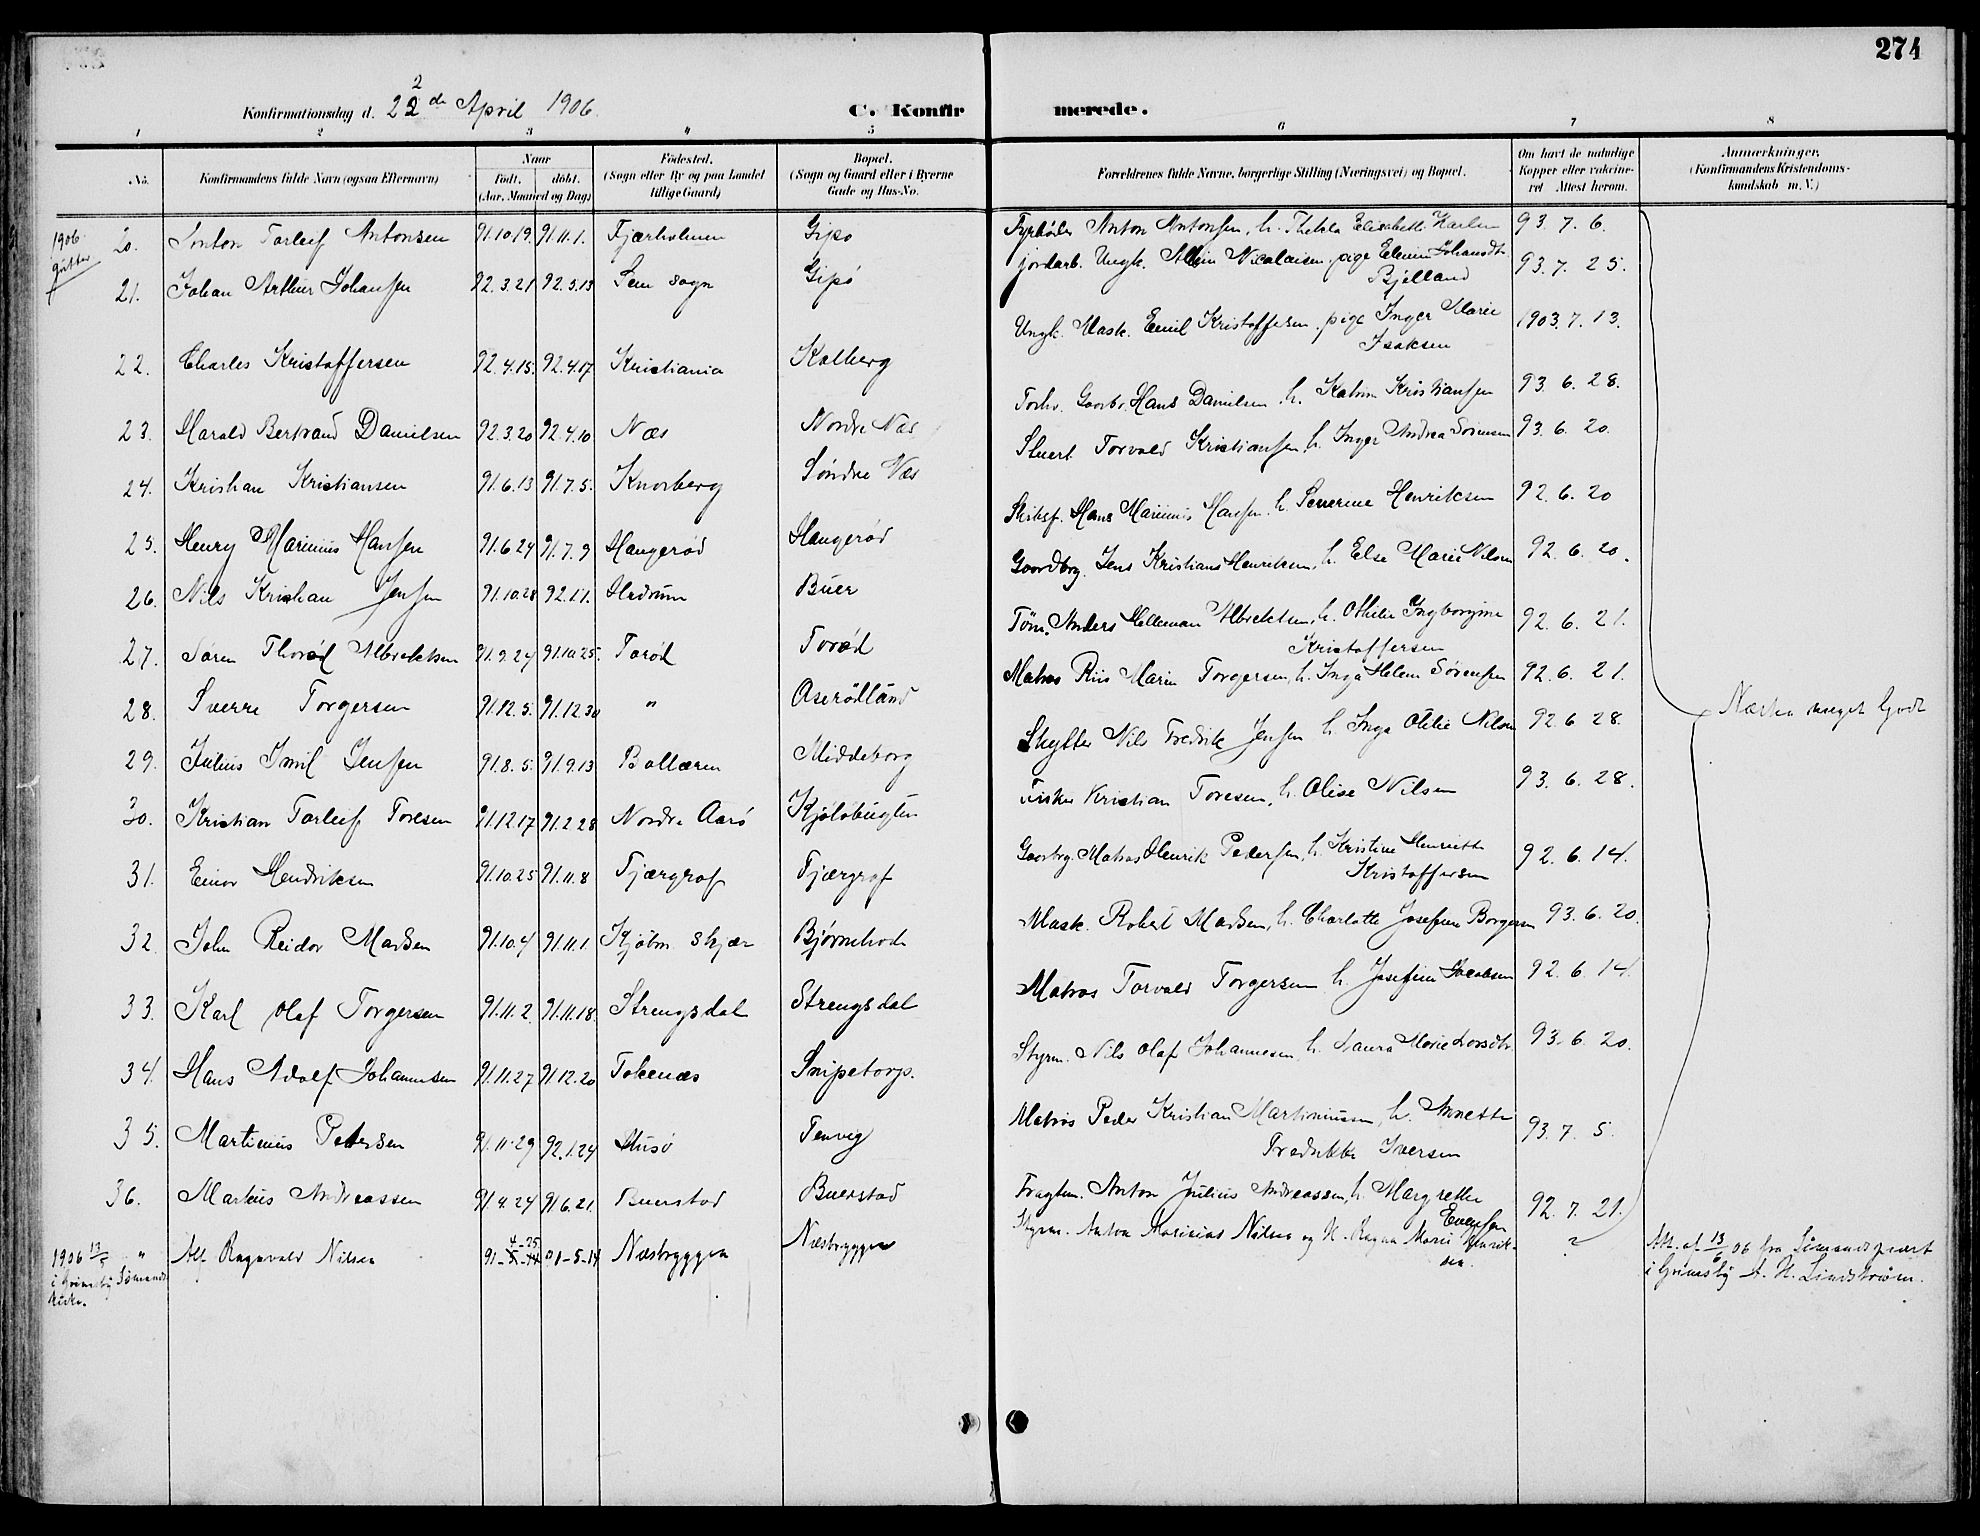 274
Konfirmationsdag d. 22de April 1906.
2
C. Konfirmerede.
1 2 3 4 5 6 7 8
No. Konfirmandens fulde Navn (ogsaa Efternavn) Naar Fødested. Bopæl. Forældrenes fulde Navne, borgerlige Stilling (Næringsvei) og Bopæl. Om havt de naturlige Anmærkninger.
født. døbt. (Sogn eller By og paa Landet (Sogn og Gaard eller i Byerne Kopper eller vakcine- (Konfirmandens Kristendoms-
(Aar, Maaned og Dag) tillige Gaard) Gade og Hus-No. ret Attest herom. kundskab m. V.)
1906 gutter
20. Anton Torleif Antonsen 91.10.19. 91.11.1. Fjærholmen Gipø Fyrbøder Anton Antonsen, h. Thekla Elisabeth Karlsen 93.7.6.
21. Johan Arthur Johansen 92.3.21 92.5.13 Sem sogn Gipø jordarb. Ungk. Nicolaisen, pige Johansdt. 93.7.25.
Bjelland
22. Charles Kristoffersen 92.4.15. 92.4.17 Kristiania Kalberg Ungk. Mask. Emil Kristoffersen, pige Inger Marie 1903.7.13.
Isaksen
23. Harald Bertrand Danielsen 92.3.20 92.4.10 Næs Nordre Næs Gaarbr. Hans Danielsen, h. Katrin Kristiansen 93.6.28.
24. Kristian Kristiansen 91.6.13 91.7.5. Knorberg Søndre Næs Stuert Torvald Kristiansen, h. Inger Andrea Sørensen 93.6.20.
25. Henry Marinius Hansen 91.6.24 91.7.9 Haugerød Haugerød Skibsf. Hans Marinius Hansen, h. Severine Henriksen 92.6.20
26. Nils Kristian Jensen 91.10.28 92.1.1. Hedrum Buer Gaardbrg. Jens Kristians Henriksen, h. Else Marie Nilsen 92.6.20.
27. Søren Thorød Albrektsen 91.9.24 91.10.25. Torød Torød Tøm. Anders Albrektsen, h. Othilie Ingborgine 92.6.21.
Kristoffersen
28. Sverre Torgersen 91.12.5. 91.12.30 " Aserødland Matros Riis Marin Torgersen, h. Inga Helene Sørensen 92.6.21.
29. Julius Emil Jensen 91.8.5. 91.9.13 Bollæren Middeborg Skytter Nils Fredrik Jensen h. Inga Otilie Nilsen 92.6.28.
30. Kristian Torleif Toresen 91.12.17 91.2.28 Nordre Aarø Kjølebugten Fisker Kristian Toresen, h. Olise Nilsen 93.6.28.
31. Einar Hendriksen 91.10.25 91.11.8 Fjærgrof Fjærgrof Gaarbrg. Matros Henrik Pedersen, h. Kristine Henriette 92.6.14.
Kristoffersen
32. John Reidor Madsen 91.10.4 91.11.1 Kjøbm. skjær Bjørnebode Mask. Robert Madsen, h. Charlotte Josefine Borgersen 93.6.20.
33. Karl Olaf Torgersen 91.11.2. 91.11.18. Strengsdal Strengsdal Matros Torvald Torgersen h. Josefine Jacobsen 92.6.14.
34. Hans Adolf Johannesen 91.11.27 91.12.20 Tokenæs Snipetorp. Styrm. Nils Olaf Johannesen, h. Laura Marie Larsdtr. 93.6.20.
35. Martinius Petersen 91.11.29 92.1.24 Husø Tenvig Matros Peder Kristian Martiniussen, h. Annette 93.7.5.
Fredrikke Iversen
36. Markus Andreassen 91.4.24 91.6.21. Buerstad Buerstad Fragtm. Anton Julius Andreassen, h. Margrethe 92.7.21.
Evensen
Næsten meget Godt
1906 13/5 " Alf Ragnvald Nilsen 91-4-25 91-5-14 Næsbryggen Næsbryggen Styrm. Anton Nilsen og H. Ragna Marie Henrik- ?
sen.
i Grimsby Sømands-
kirke.
Att. af 13/6 06 fra Sømandspræst
i Grimsby A. H. Lindstrøm.